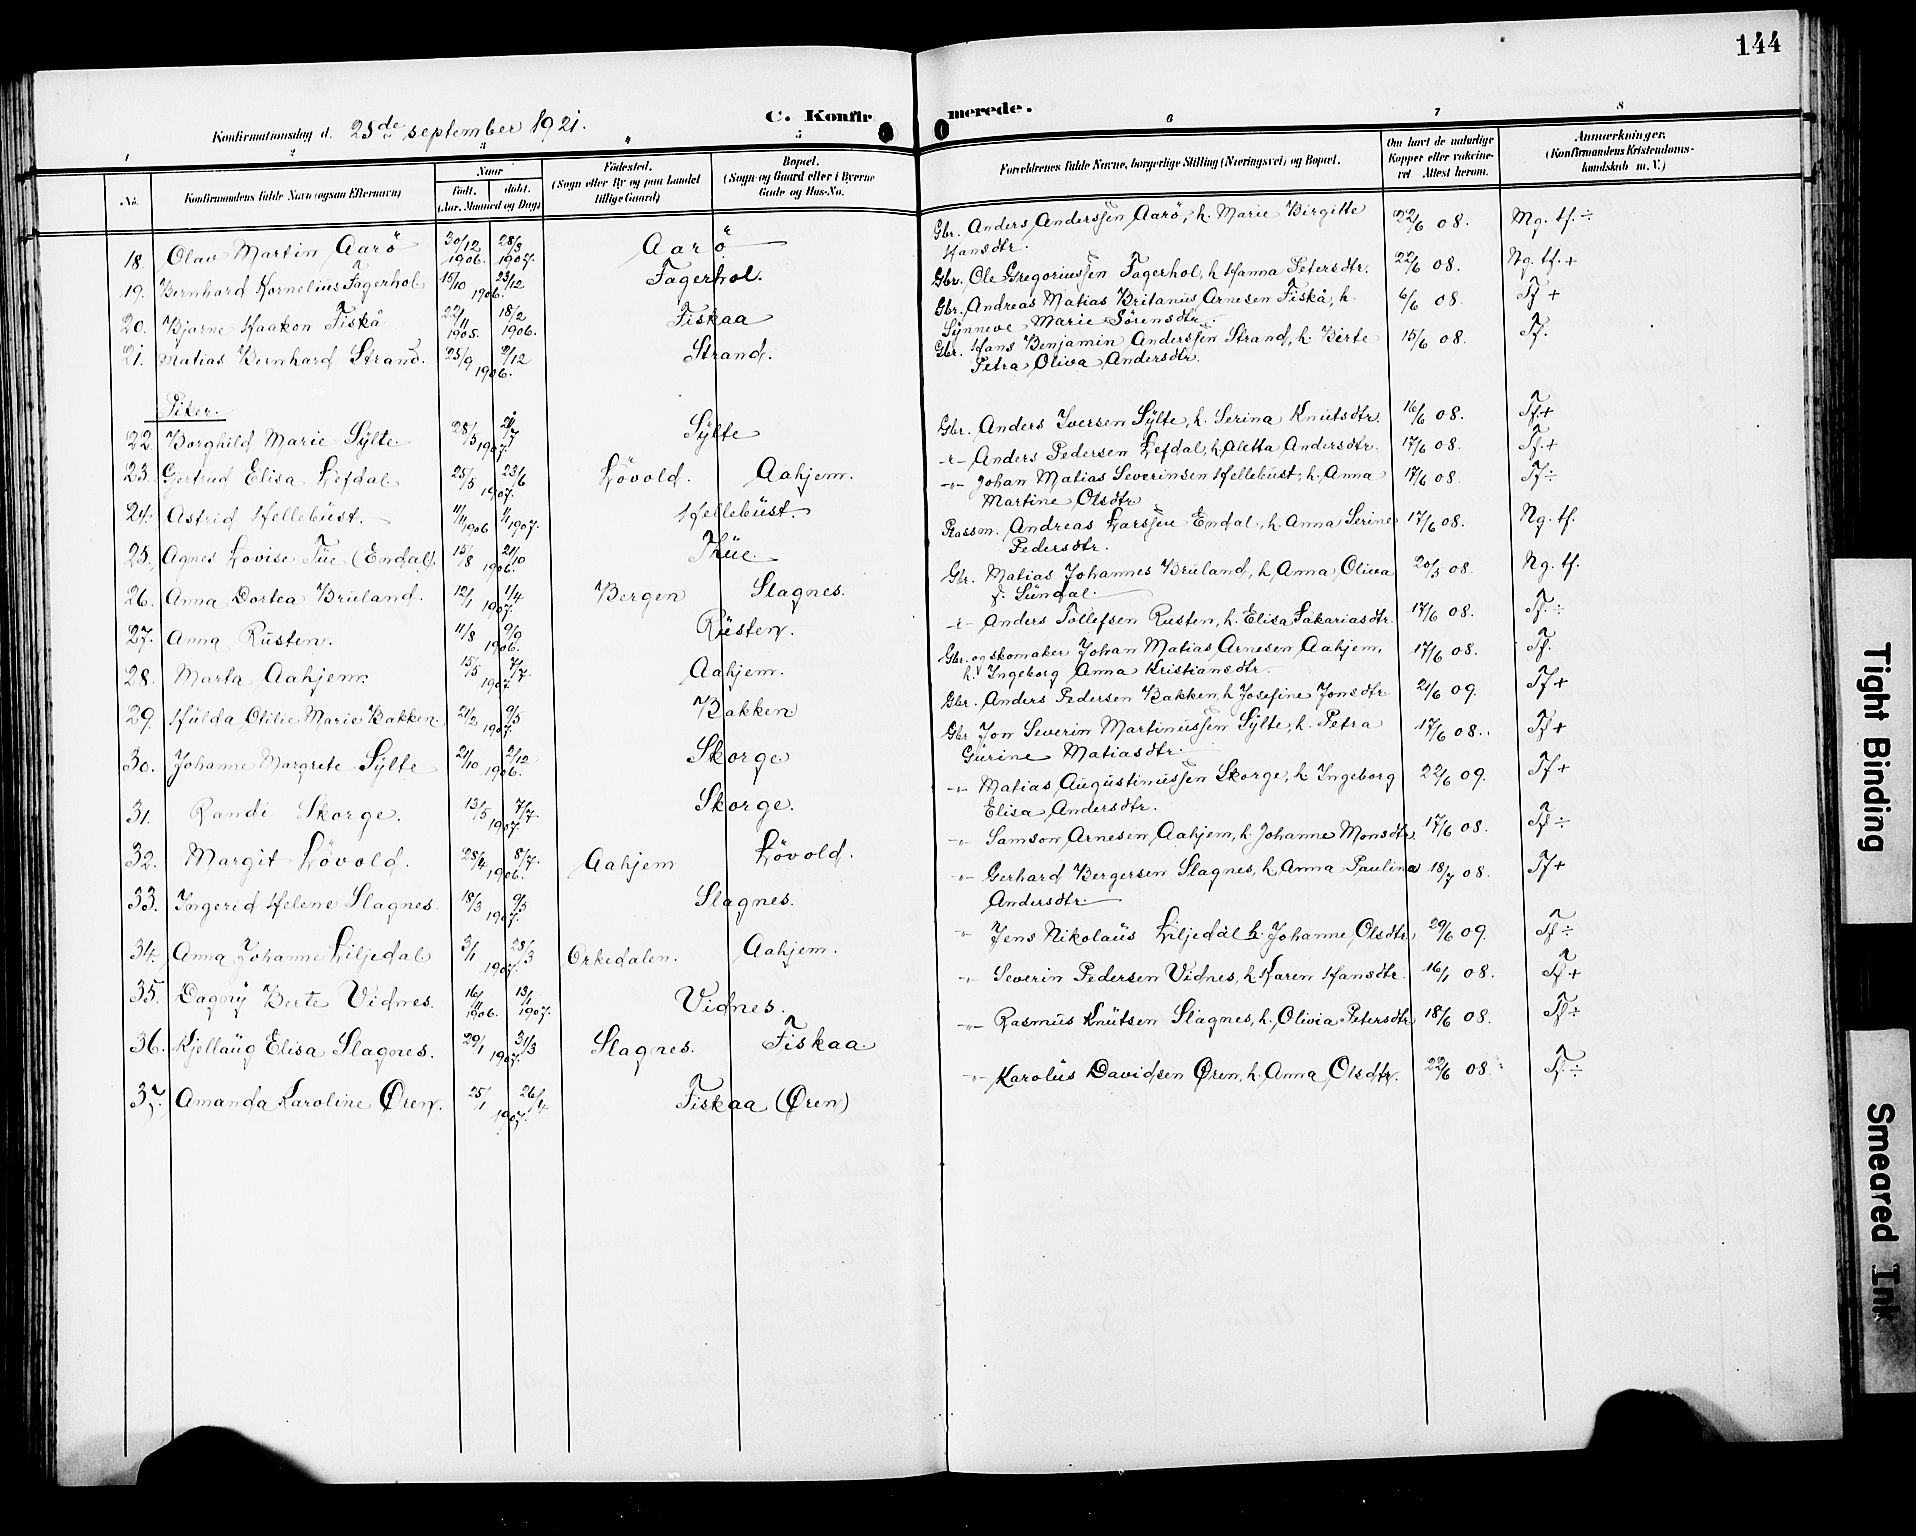 144
C. Konfirmerede.
Konfirmationsdag d. 25de september 1921.
1 2 3 4 5 6 7 8
No. Konfirmandens fulde Navn (ogsaa Efternavn) Naar født. døbt. (Aar, Maaned og Dag) Fødested. (Sogn eller By og paa Landet tillige Gaard) Bopæl. (Sogn og Gaard eller i Byerne Gade og Hus-No. Forældrenes fulde Navne, borgerlige Stilling (Næringsvei) og Bopæl. Om havt de naturlige Kopper eller vakcineret Attest herom. Anmærkninger. (Konfirmandens Kristendomskundskab m. V.)
18. Olav Martin Aarö 30/12 1906. 28/3 1907. Aarö Gbr. Anders Anderssen Aarö, h. Marie Birgitte Hansdtr. 22/6 08. Mg. tf. ÷
19. Bernhard Kornelius Fagerhol 15/10 23/12 1906. Fagerhol. Gbr. Ole Gregoriussen Fagerhol, h. Hanna Petersdtr. 22/6 08. Ng. tf. +
20. Bjarne Haakon Fiskå 22/11 1905. 18/2 1906. Fiskaa Gbr. Andreas Matias Britanus Arnesen Fiskå, h. Synneve Marie Sörensdtr. 6/6 08. Tf +
21. Matias Bernhard Strand. 25/9 2/12 1906. Strand. Gbr. Hans Benjamin Anderssen Strand, h. Birte Petra Oliva Andersdtr. 15/6 08. Tf.
Piker.
22. Borghild Marie Sylte 28/3 1907. Sylte Gbr. Anders Iversen Sylte, h. Serina Knutsdtr. 16/6 08. Tf. +
23. Gertrud Elisa Lefdal 25/5 23/6 1907. Lövold. Aahjem. -"- Anders Pedersen Lefdal, h. Aletta Andersdtr. 17/6 08. Tf. +
24. Astrid Hellebust. 11/11 1906 1/1 1907. Hellebust. -"- Johan Matias Severinsen Hellebust, h. Anna Martine Olsdtr 17/6 08. Tf ÷
25. Agnes Lovise Tue (Endal) 15/8 21/10 1906. Thue. Plassm. Andreas Larssen Endal, h. Anna Serine Pedersdtr. 17/6 08. Ng. tf.
26. Anna Dortea Bruland. 12/1 1/4 1907. Bergen Slagnes. Gbr. Matias Johannes Bruland, h. Anna Oliva f. Sundal. 20/5 08. Ng. tf.
27. Anna Rusten. 11/8 9/9 1906. Rusten. -"- Anders Tollefsen Rusten, h. Elisa Sakariasdtr. 17/6 08. Tf. ÷
28. Marta Aahjem. 15/5 7/7 1907. Aahjem. Gbr. og skomaker Johan Matias Arnesen Aahjem, h. Ingeborg Anna Kristiansdtr. 17/6 08. Tf.
29. Hulda Otilie Marie Bakken 21/2 9/5 1907. Bakken Gbr. Anders Pedersen Bakken, h Josefine Jonsdtr 21/6 09. Tf +
30. Johanne Margrete Sylte 21/10 2/12 1906. Skorge Gbr Jon Severin Martinussen Sylte, h. Petra Gurine Matiasdtr. 17/6 08. Tf +
31. Randi Skorge. 13/5 7/7. 1907. Skorge. -"- Matias Augustinussen Skorge, h. Ingeborg Elisa Andersdtr. 22/6 09. Tf +
32. Margit Lövold. 28/4 8/7. 1906. Aahjem Lövold. -"- Samson Arnesen Aahjem, h. Johanne Monsdtr. 17/6 08. Tf ÷
33. Ingerid Helene Slagnes. 18/3 9/3 1907. Slagnes. -"- Gerhard Bergersen Slagnes, h. Anna Paulina Andersdtr. 18/7 08. Tf +
34. Anna Johanne Liljedal 3/1 28/3 1907. Orkedalen. Aahjem. -"- Jens Nikolaus Liljedal h. Johanne Olsdtr. 29/6 09. Tf ÷
35. Dagny Berte Vidnes. 16/11 1906. 13/1 1907. Vidnes. -"- Severin Pedersen Vidnes, h. Karen Hansdtr. 16/1 08. Tf +
36. Kjellaug Elisa Slagnes. 29/1 31/3 1907. Slagnes. Fiskaa. -"- Rasmus Knutsen Slagnes, h. Olivia Petersdtr. 18/6 08. Tf ÷
37. Amanda Karoline Øren. 25/1 26/4 1907. Fiskaa (Øren) -"- Karolus Davidsen Øren, h. Anna Olsdtr. 22/6 08. Tf. ÷
Tight Binding
Smeared Ink